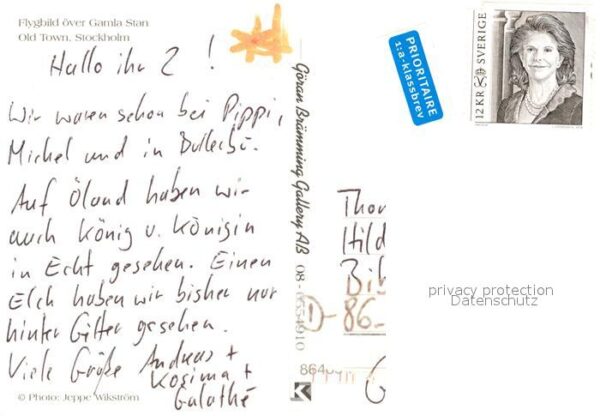 Flygbild över Gamla Stan
Old Town, Stockholm
Hallo ihr 2 !
Wir waren schon bei Pippi,
Michel und in Bullerbü.
Auf Öland haben wir
auch König u. Königin
in Echt gesehen. Einen
Elch haben wir bisher nur
hinter Gitter gesehen.
Viele Grüße Andreas +
Kosima +
Galathé
© Photo: Jeppe Wikström
Göran Brämming Gallery AB 08-
PRIORITAIRE
1:a-klassbrev
12 KR SVERIGE
Thor
Hild
Bib
D-86
privacy protection
Datenschutz